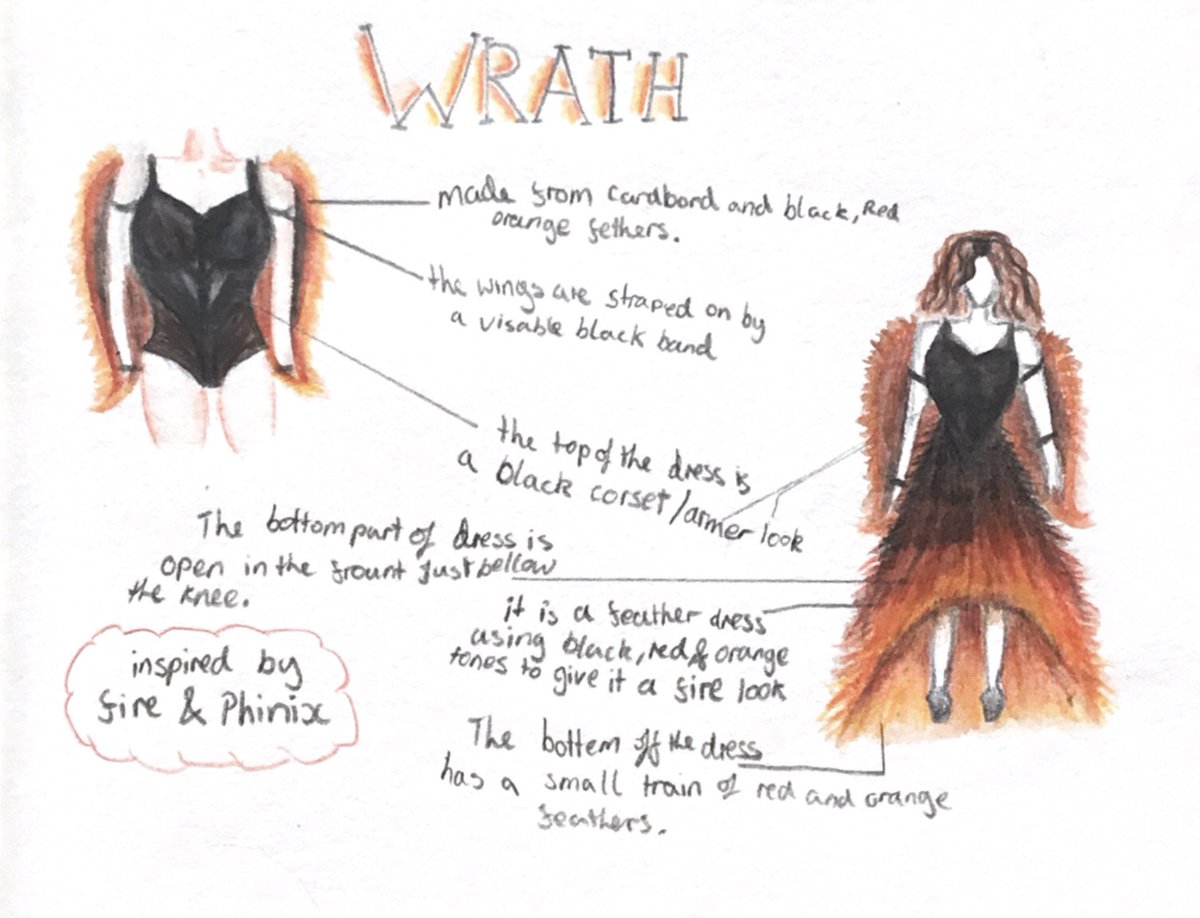 WRATH
made from cardbord and black, Red
orange fethers.
the wings are straped on by
a visable black band
the top of the dress is
a black corset/armer look
The bottom part of dress is
open in the frount just bellow
the knee.
it is a feather dress
using black, red & orange
tones to give it a fire look
inspired by
fire & Phinix
The bottem off the dress
has a small train of red and orange
feathers.